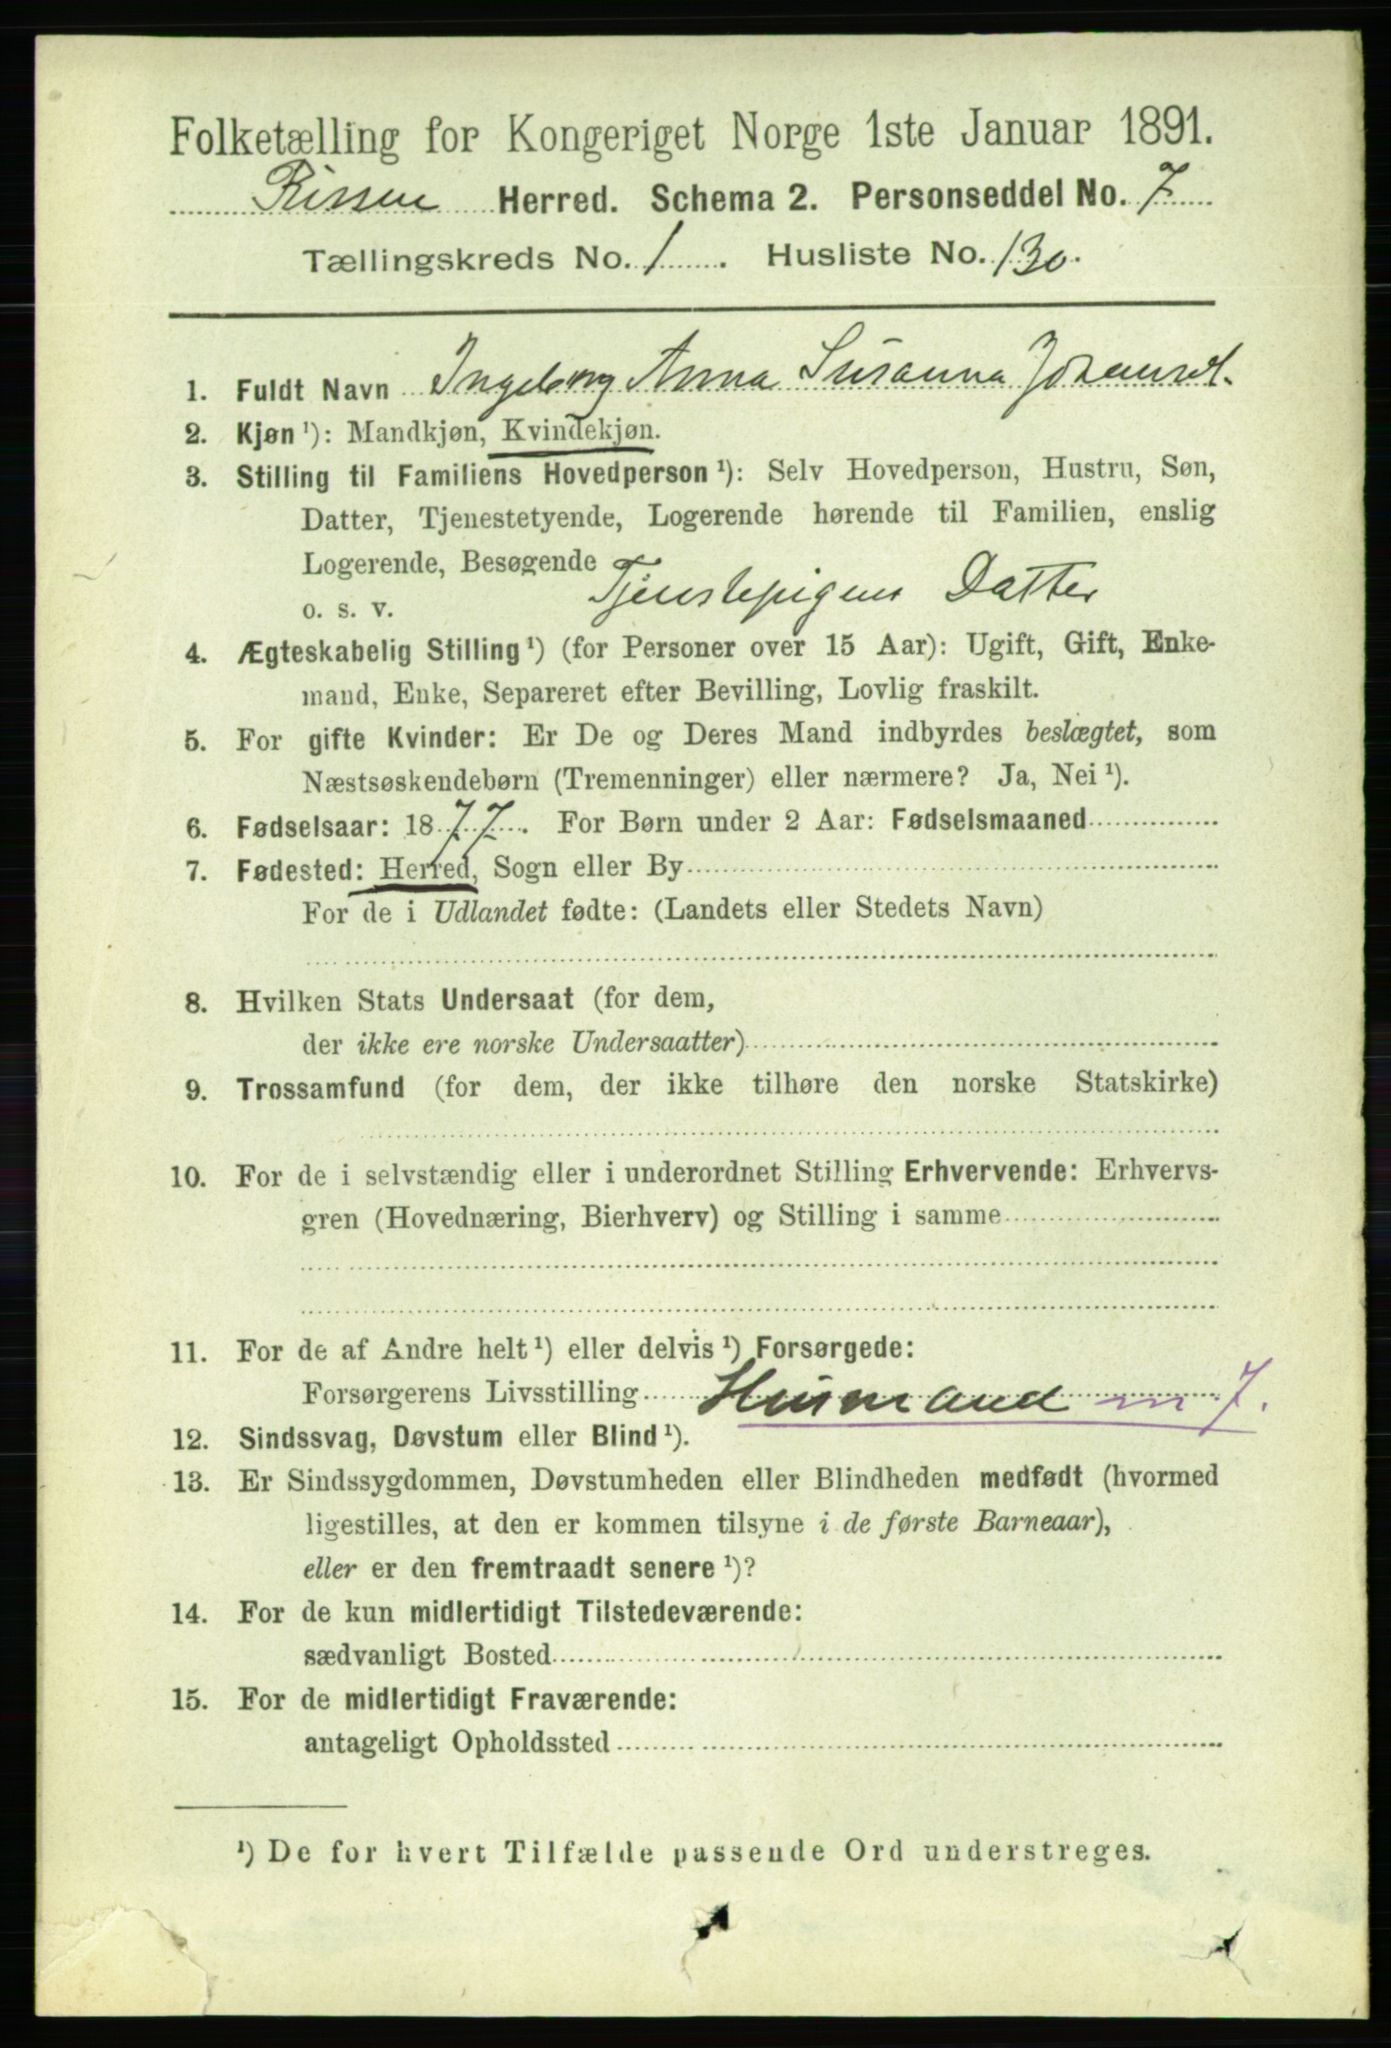 Folketælling for Kongeriget Norge 1ste Januar 1891.
Rissen Herred. Schema 2. Personseddel No. 7
Tællingskreds No. 1. Husliste No. 130.
1. Fuldt Navn Ingeborg Anna Susanna Johansd.
2. Kjøn ¹): Mandkjøn, Kvindekjøn.
3. Stilling til Familiens Hovedperson ¹): Selv Hovedperson, Hustru, Søn,
Datter, Tjenestetyende, Logerende hørende til Familien, enslig
Logerende, Besøgende
o. s. v. Tjenstepigens Datter
4. Ægteskabelig Stilling ¹) (for Personer over 15 Aar): Ugift, Gift, Enke-
mand, Enke, Separeret efter Bevilling, Lovlig fraskilt.
5. For gifte Kvinder: Er De og Deres Mand indbyrdes beslægtet, som
Næstsøskendebørn (Tremenninger) eller nærmere? Ja, Nei ¹).
6. Fødselsaar: 1877. For Børn under 2 Aar: Fødselsmaaned
7. Fødested: Herred, Sogn eller By
For de i Udlandet fødte: (Landets eller Stedets Navn)
8. Hvilken Stats Undersaat (for dem,
der ikke ere norske Undersaatter)
9. Trossamfund (for dem, der ikke tilhøre den norske Statskirke)
10. For de i selvstændig eller i underordnet Stilling Erhvervende: Erhvervs-
gren (Hovednæring, Bierhverv) og Stilling i samme
11. For de af Andre helt ¹) eller delvis ¹) Forsørgede:
Forsørgerens Livsstilling Husmand m 7.
12. Sindssvag, Døvstum eller Blind ¹).
13. Er Sindssygdommen, Døvstumheden eller Blindheden medfødt (hvormed
ligestilles, at den er kommen tilsyne i de første Barneaar),
eller er den fremtraadt senere ¹)?
14. For de kun midlertidigt Tilstedeværende:
sædvanligt Bosted
15. For de midlertidigt Fraværende:
antageligt Opholdssted
¹) De for hvert Tilfælde passende Ord understreges.